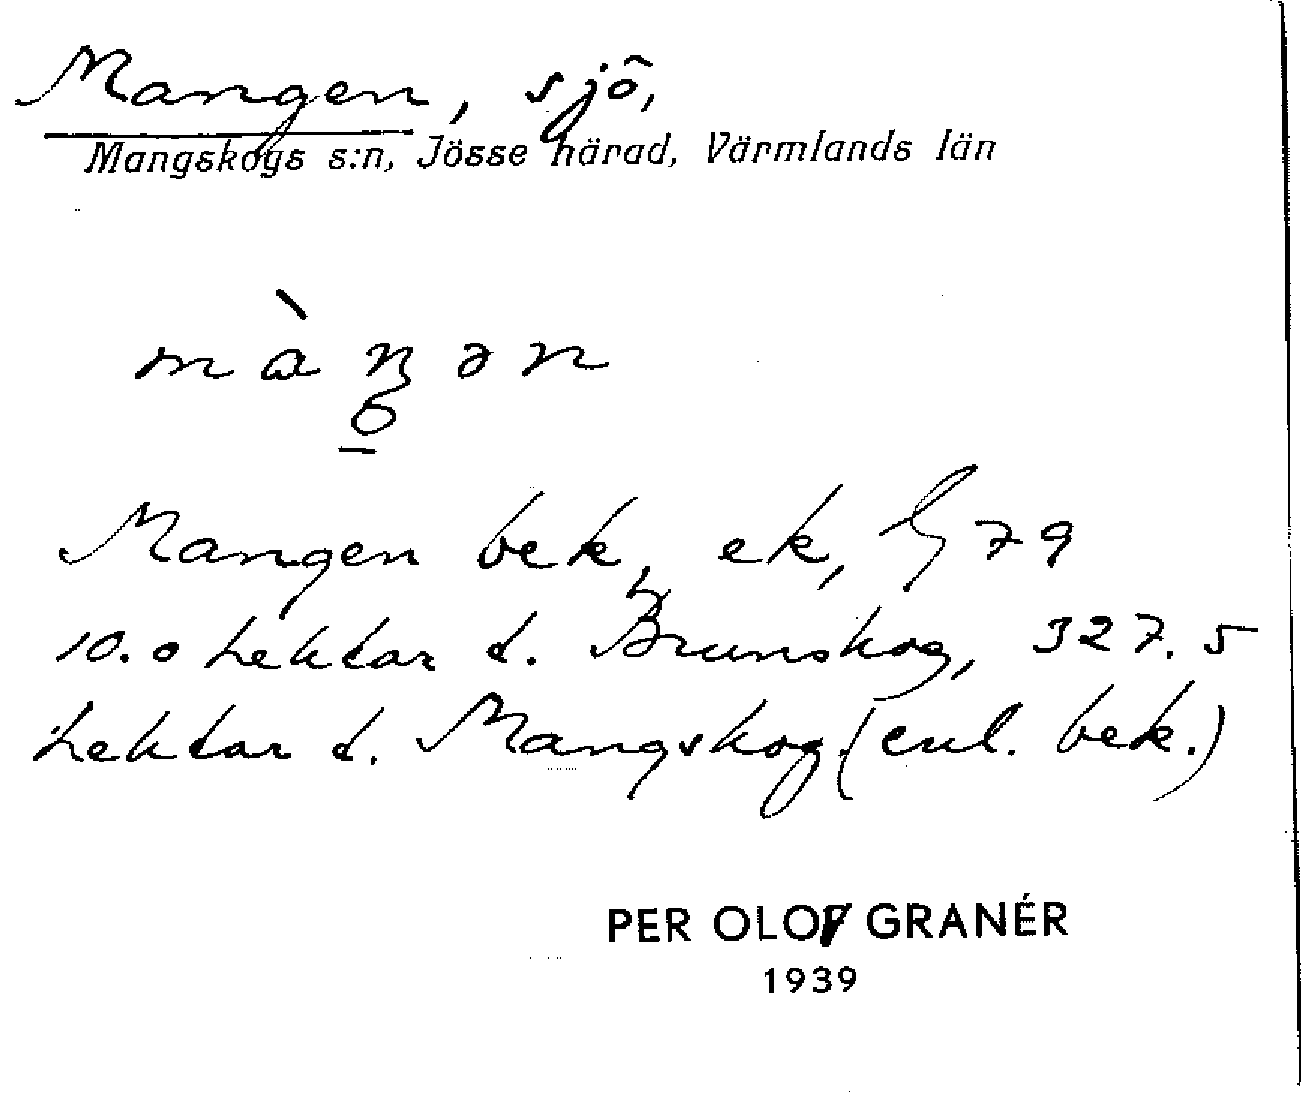 Mangen, sjö,
Mangskogs s:n, Jösse härad, Värmlands län
màŋən
Mangen bek, ek, G 79
10.0 hektar t. Brunskog, 327.5
hektar t. Mangskog (enl. bek.)
PER OLOF GRANÉR
1939